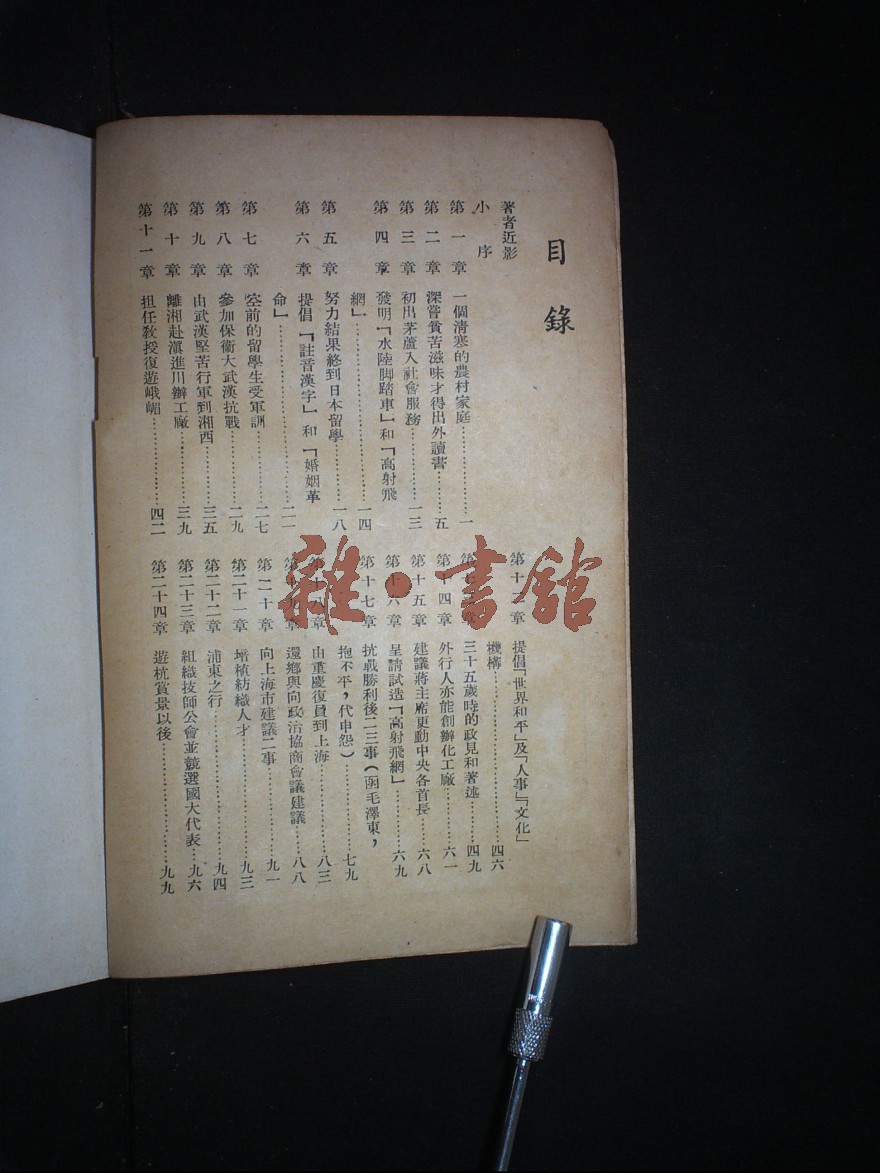 目錄
著者近影
小序
第一章 一個清寒的農村家庭………………一
第二章 深嘗貧苦滋味才得出外讀書………五
第三章 初出茅蘆入社會服務………………一三
第四章 發明「水陸脚踏車」和「高射飛
網」………………一四
第五章 努力結果終到日本留學………一八
第六章 提倡「註音漢字」和「婚姻革
命」………………二一
第七章 空前的留學生受軍訓………二七
第八章 參加保衞大武漢抗戰………二九
第九章 由武漢堅苦行軍到湘西………三五
第十章 離湘赴滇進川辦工廠………三九
第十一章 担任敎授復遊峨嵋………四二
第十二章 提倡「世界和平」及「人事」「文化」
機構………………四六
第十三章 三十五歲時的政見和著述………四九
第十四章 外行人亦能創辦化工廠………六一
第十五章 建議蔣主席更動中央各首長………六八
第十六章 呈請試造「高射飛網」………六九
第十七章 抗戰勝利後二三事(函毛澤東,
抱不平,代申怨)………七九
第十八章 由重慶復員到上海………八三
第十九章 還鄉與向政治協商會議建議………八八
第二十章 向上海市建議二事………九一
第二十一章 增植紡織人才………九三
第二十二章 浦東之行………九四
第二十三章 組織技師公會並競選國大代表………九六
第二十四章 遊杭賞景以後………九九
雜·書館